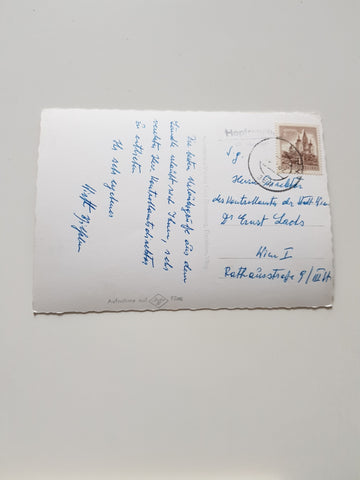 Die besten Urlaubsgrüße aus dem
Ländle erlaubt sich Ihnen, sehr
verehrter Herr Kontrollamtsdirektor
zu entbieten
Ihr sehr ergebener
Hopf
S.g.
Herrn Direktor
des Kontrollamtes der Stadt Wien
Dr Ernst Lachs
Wien I
Rathausstraße 9/III St
Aufnahme auf Agfa Film